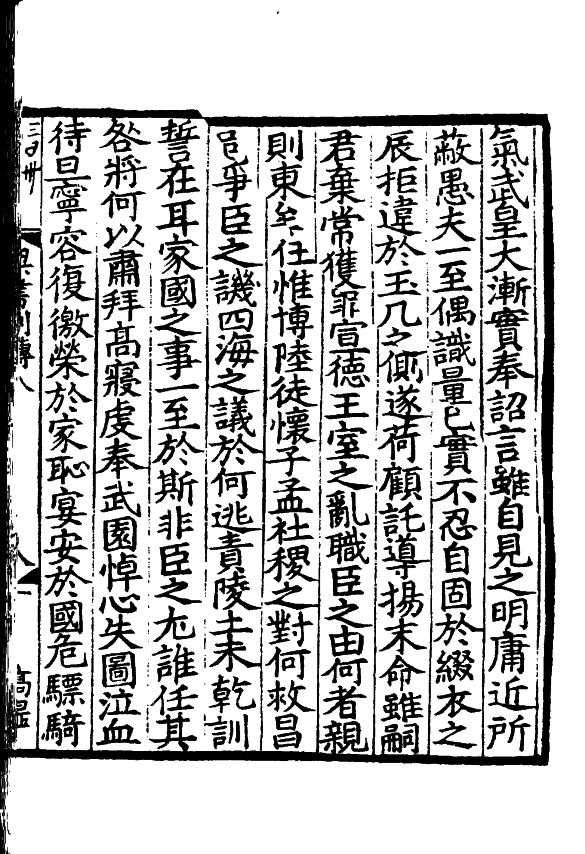 氣武皇大漸實奉詔言雖自見之明庸近所
蔽愚夫一至偶識量已實不忍自固於綴衣之
辰拒違於玉几之側遂荷顧託導揚末命雖嗣
君棄常獲罪宣德王室之亂職臣之由何者親
則東牟任惟博陸徒懷子孟社稷之對何救昌
邑爭臣之譏四海之議於何逃責陵土未乾訓
誓在耳家國之事一至於斯非臣之尤誰任其
咎將何以肅拜高寢虔奉武園悼心失圖泣血
待旦寧容復徼榮於家恥宴安於國危驃騎